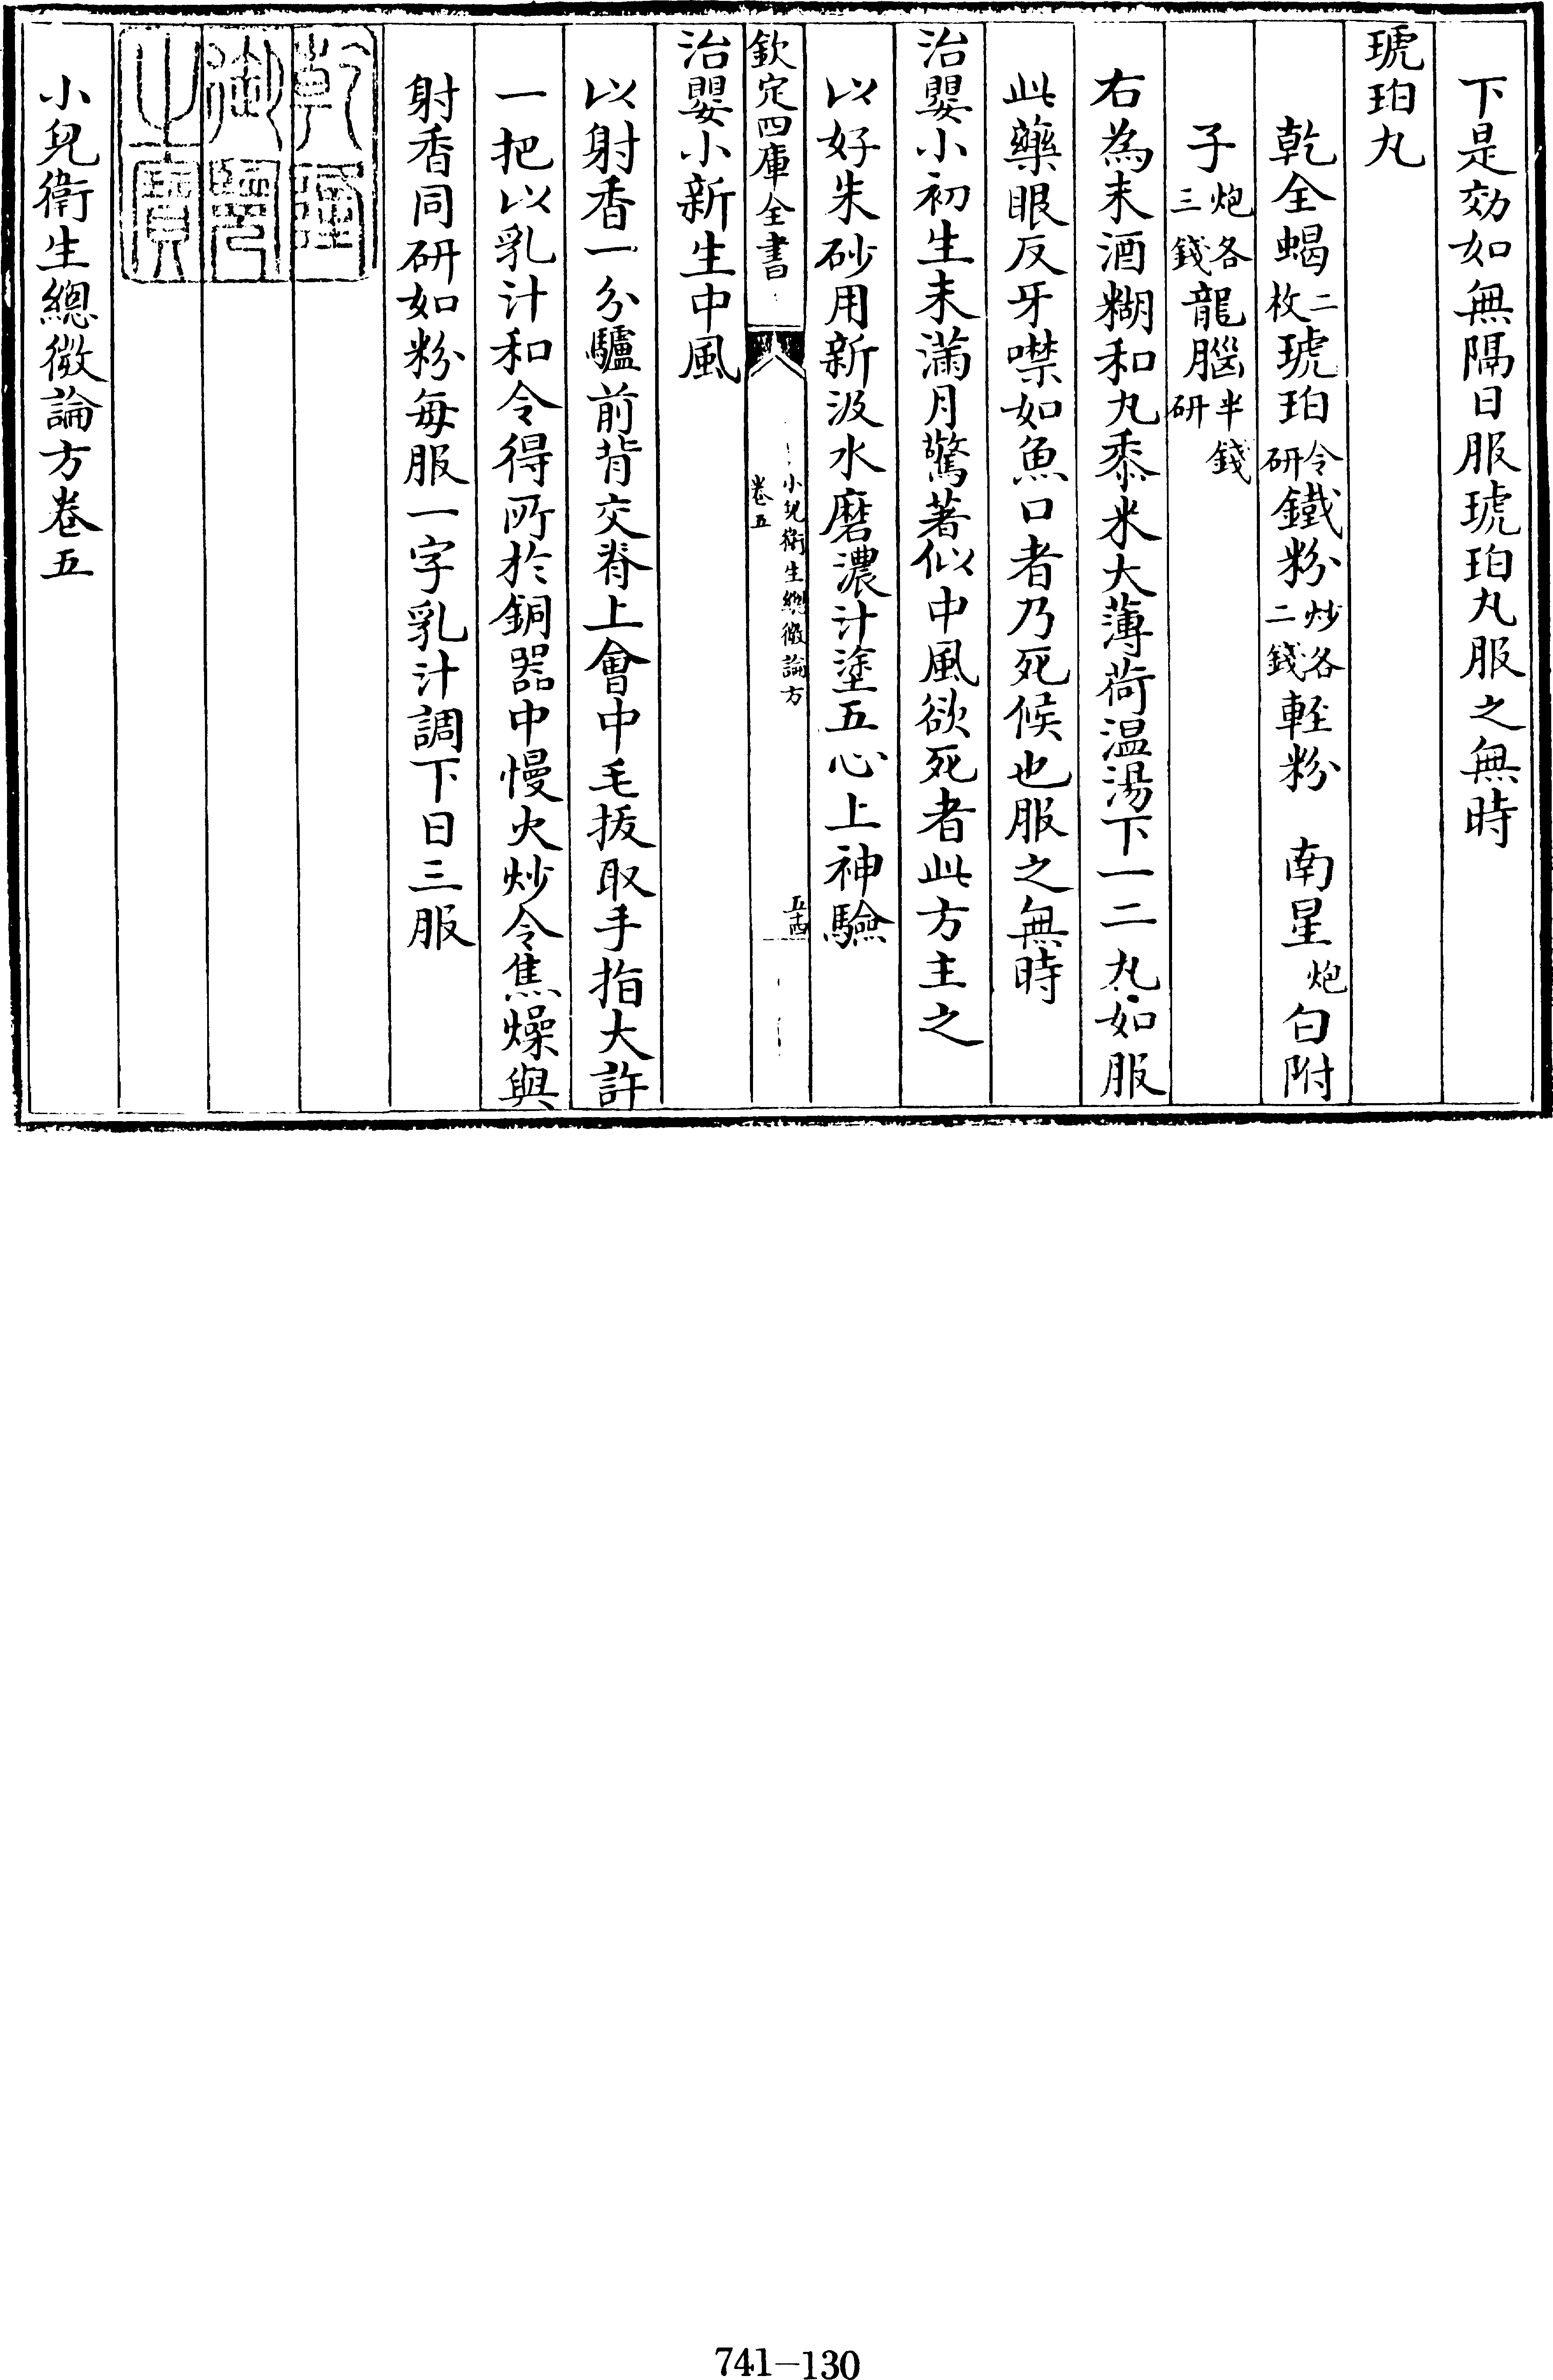 下是効如無隔日服琥珀丸服之無時
琥珀丸
乾全蝎二枚琥珀令研鐵粉炒各二錢輕粉　南星炮白附
子炮各三錢龍腦半錢研
右為末酒糊和丸黍米大薄荷温湯下一二丸如服
此藥眼反牙噤如魚口者乃死候也服之無時
治嬰小初生未滿月驚著似中風欲死者此方主之
以好朱砂用新汲水磨濃汁塗五心上神驗
欽定四庫全書
小兒衛生總微論方
卷五
五四
治嬰小新生中風
以射香一分驢前背交脊上會中毛拔取手指大許
一把以乳汁和令得所於銅器中慢火炒令焦燥與
射香同研如粉每服一字乳汁調下日三服
乾隆
御覽
之寶
小兒衛生總微論方卷五
741-130